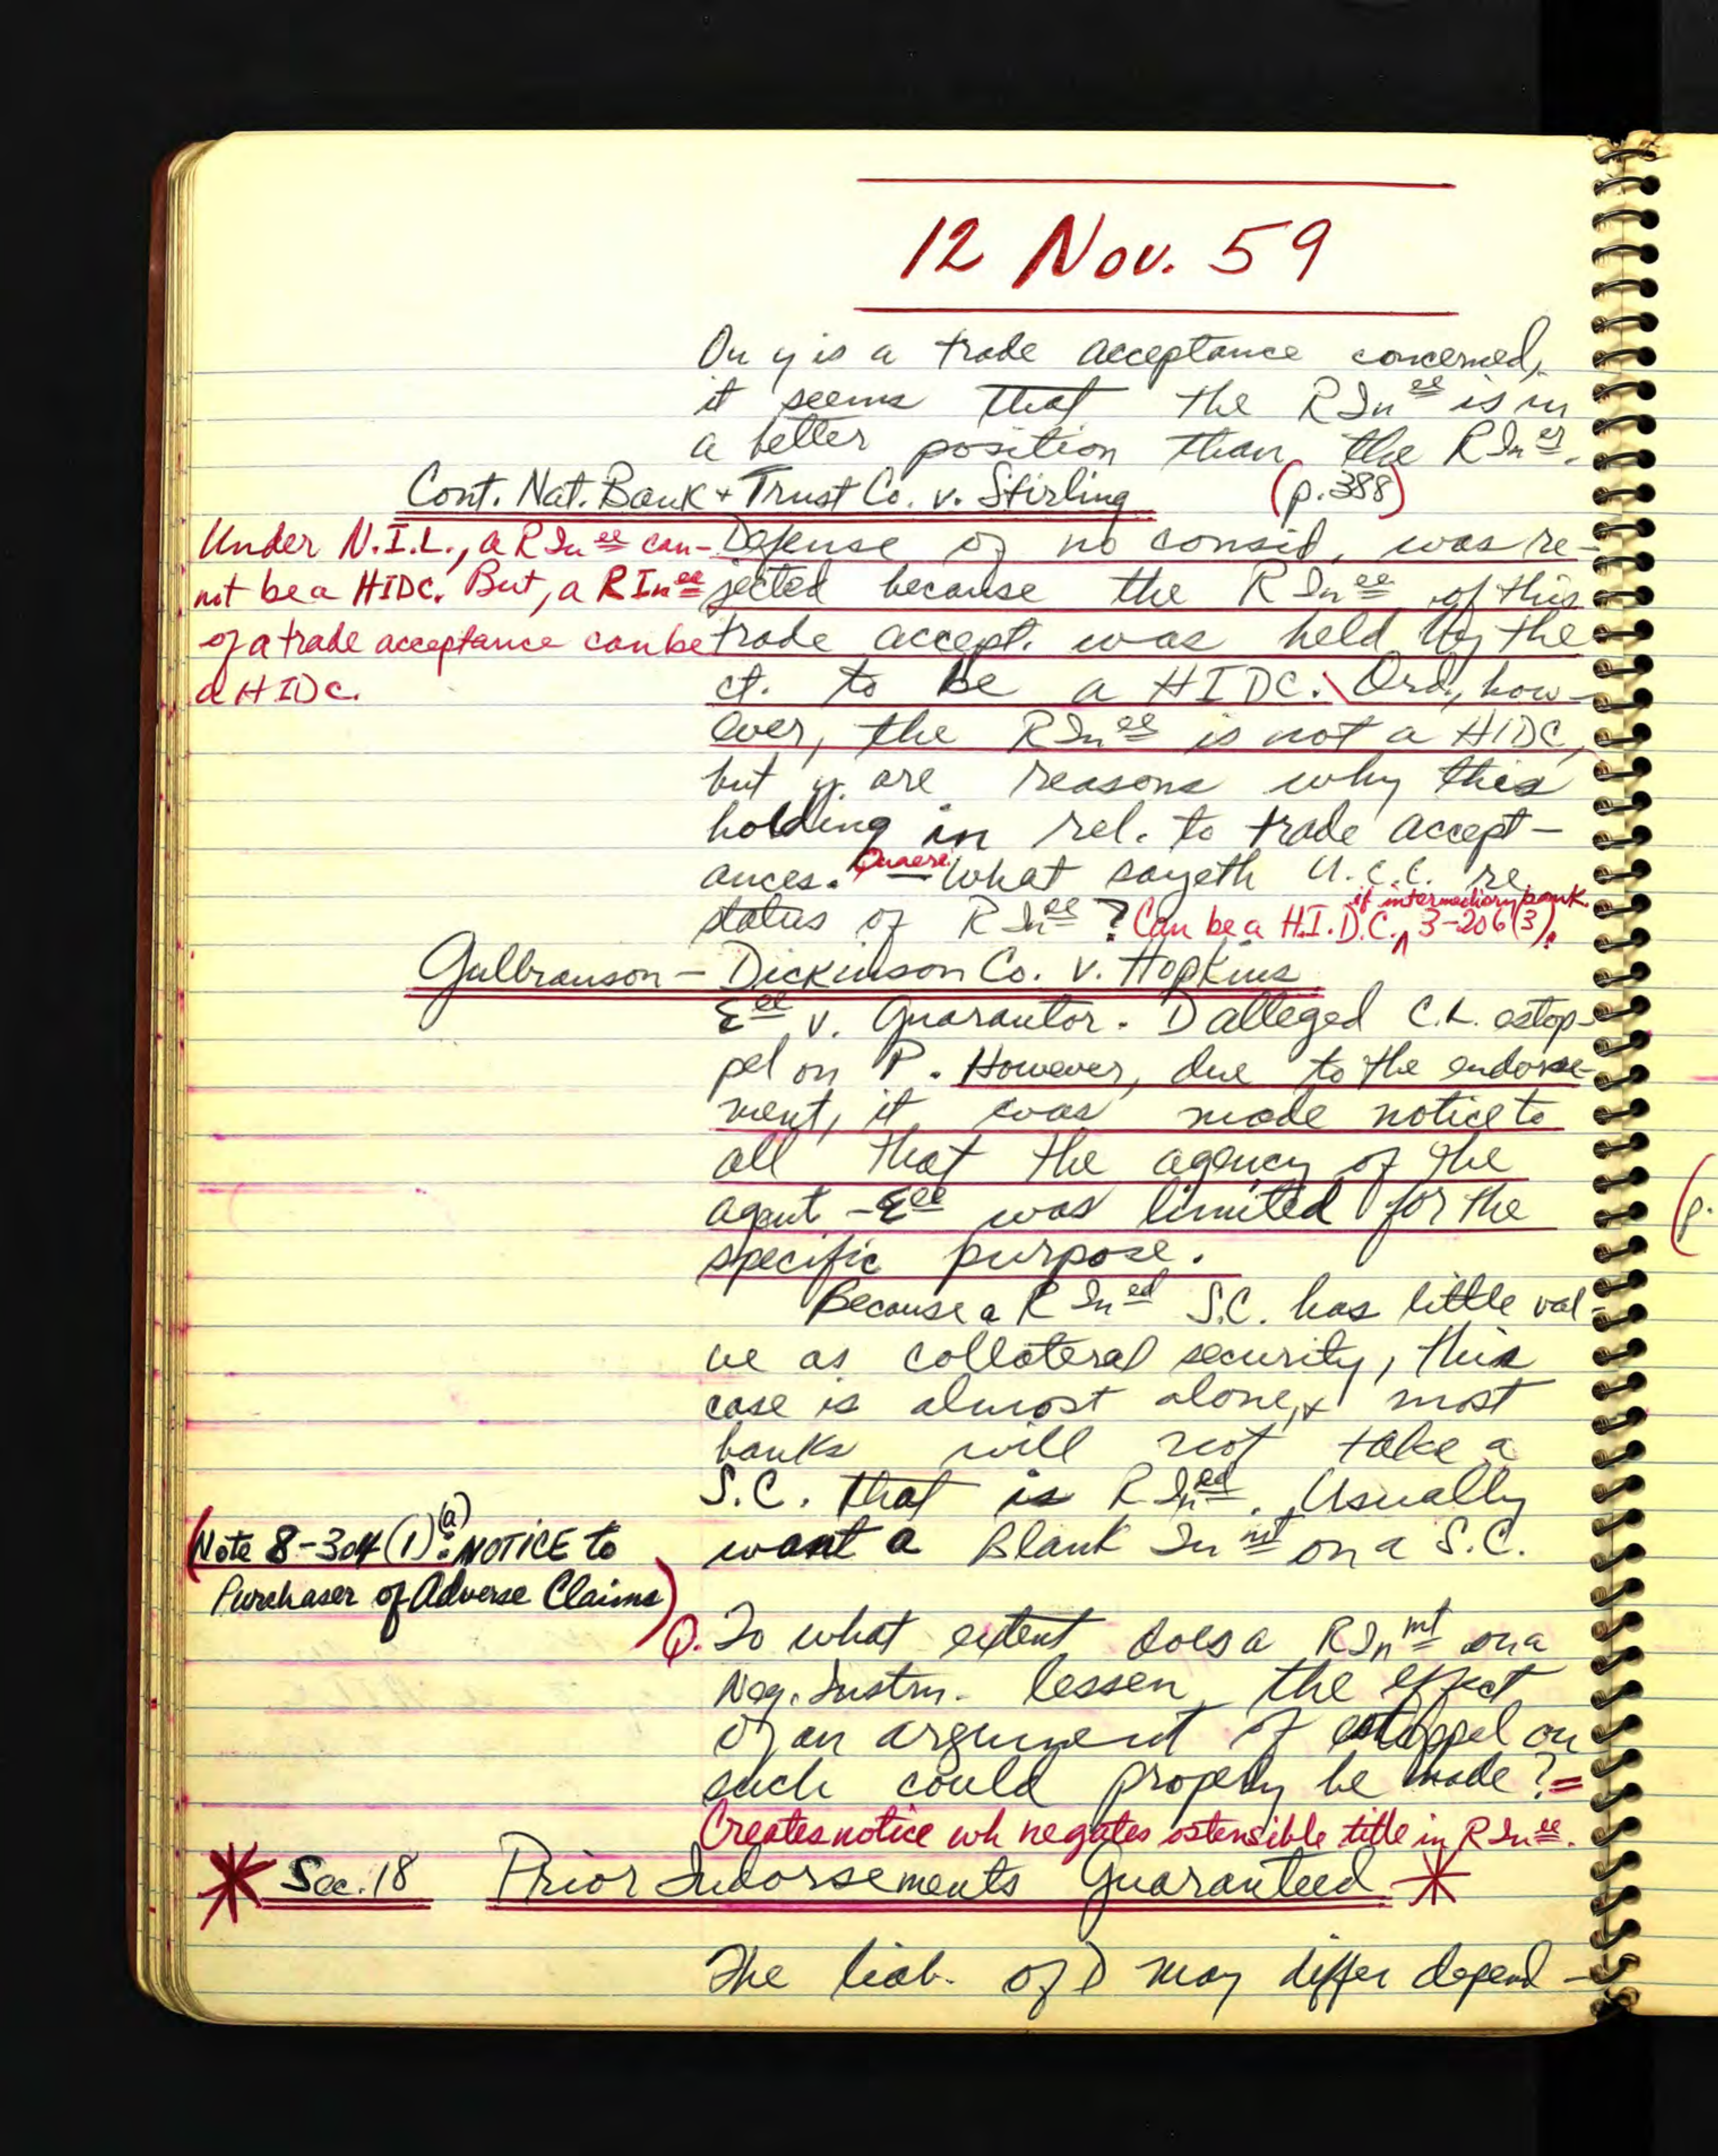 12 Nov. 59
On y is a trade acceptance concerned,
it seems that the RIn ee is in
a better position than the RIn er.
Cont. Nat. Bank + Trust Co. v. Stirling (p.388)
Under N.I.L., a RIn ee can-
not be a HIDC. But, a RIn ee
of a trade acceptance can be
a HIDC.
Defense of no consid. was re-
jected because the RIn ee of this
trade accept. was held by the
ct. to be a HIDC. Ord., how-
ever, the RIn ee is not a HIDC,
but y are reasons why this
holding in rel. to trade accept-
ances. Quaere — What sayeth U.C.C. re
status of RIn ee? Can be a H.I.D.C. if intermediary bank. 3-206(3).
Gulbranson - Dickinson Co. v. Hopkins
Eee v. Guarantor. D alleged C.L. estop-
pel on P. However, due to the endorse-
ment, it was made notice to
all that the agency of the
agent - Eee was limited for the
specific purpose.
Because a RIn ed S.C. has little val-
ue as collateral security, this
case is almost alone, + most
banks will not take a
S.C. that is RIn ed. Usually
want a Blank In mt on a S.C.
(Note 8-304(1)(a): NOTICE to
Purchaser of Adverse Claims)
Q. To what extent does a RIn mt on a
Neg. Instrm. lessen the effect
of an argument of estoppel on
such could properly be made? =
Creates notice wh negates ostensible title in RIn ee.
* Sec. 18 Prior Indorsements Guaranteed *
The liab. of D may differ depend-
(p.